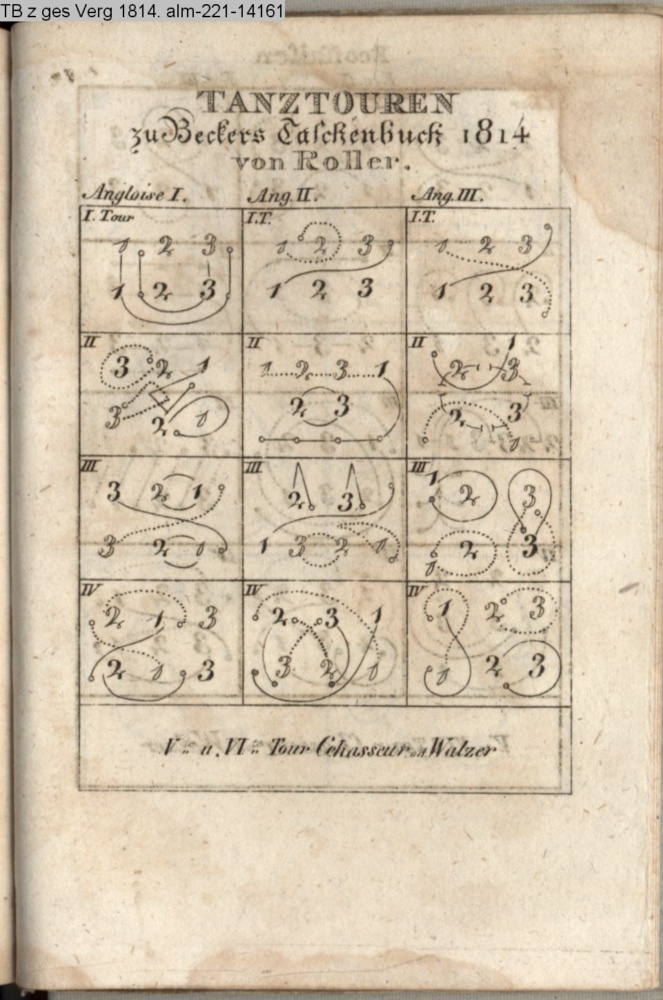 TB z ges Verg 1814. alm-221-14161
TANZTOUREN
zu Beckers Taschenbuch 1814
von Roller.
Angloise I. Ang. II. Ang. III.
I. Tour I.T. I.T.
1 2 3 1 2 3 1 2 3
1 2 3 1 2 3 1 2 3
II II II 1
3 2 1 1 2 3 1 2 3
3 2 1 2 3 2 3
1
III III III 1
3 2 1 2 3 2 3
3 2 1 1 3 2 1 2 3
1
IV IV IV
2 1 3 2 3 1 1 2 3
2 1 3 3 2 1 1 2 3
V u. VI Tour Chasseur Walzer